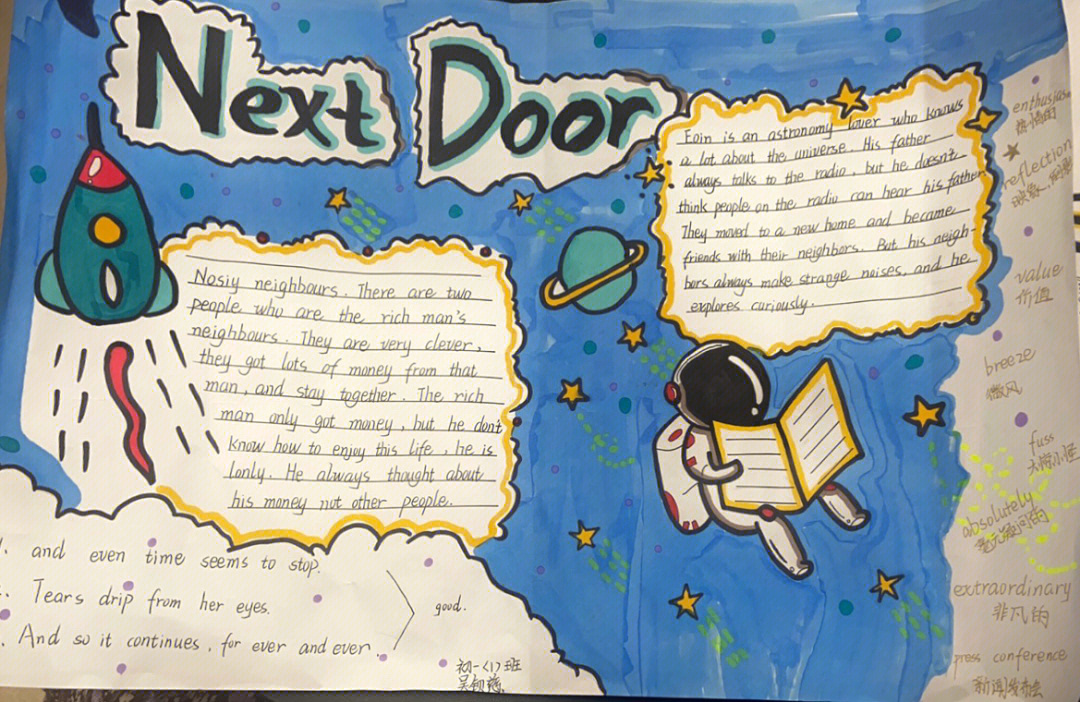 Next Door
Eoin is an astronomy lover who knows
a lot about the universe. His father
always talks to the radio, but he doesn't
think people on the radio can hear his father
They moved to a new home and became
friends with their neighbors. But his neigh-
bors always make strange noises, and he
explores curiously.
Nosiy neighbours. There are two
people who are the rich man's
neighbours. They are very clever,
they got lots of money from that
man, and stay together. The rich
man only got money, but he dont
know how to enjoy this life, he is
lonly. He always thought about
his money not other people.
and even time seems to stop.
Tears drip from her eyes.
And so it continues, for ever and ever.
good.
初一<1>班
enthusiasm
热情的
reflection
value
价值
breeze
微风
fuss
大惊小怪
absolutely
毫无疑问的
extraordinary
非凡的
press conference
新闻发布会